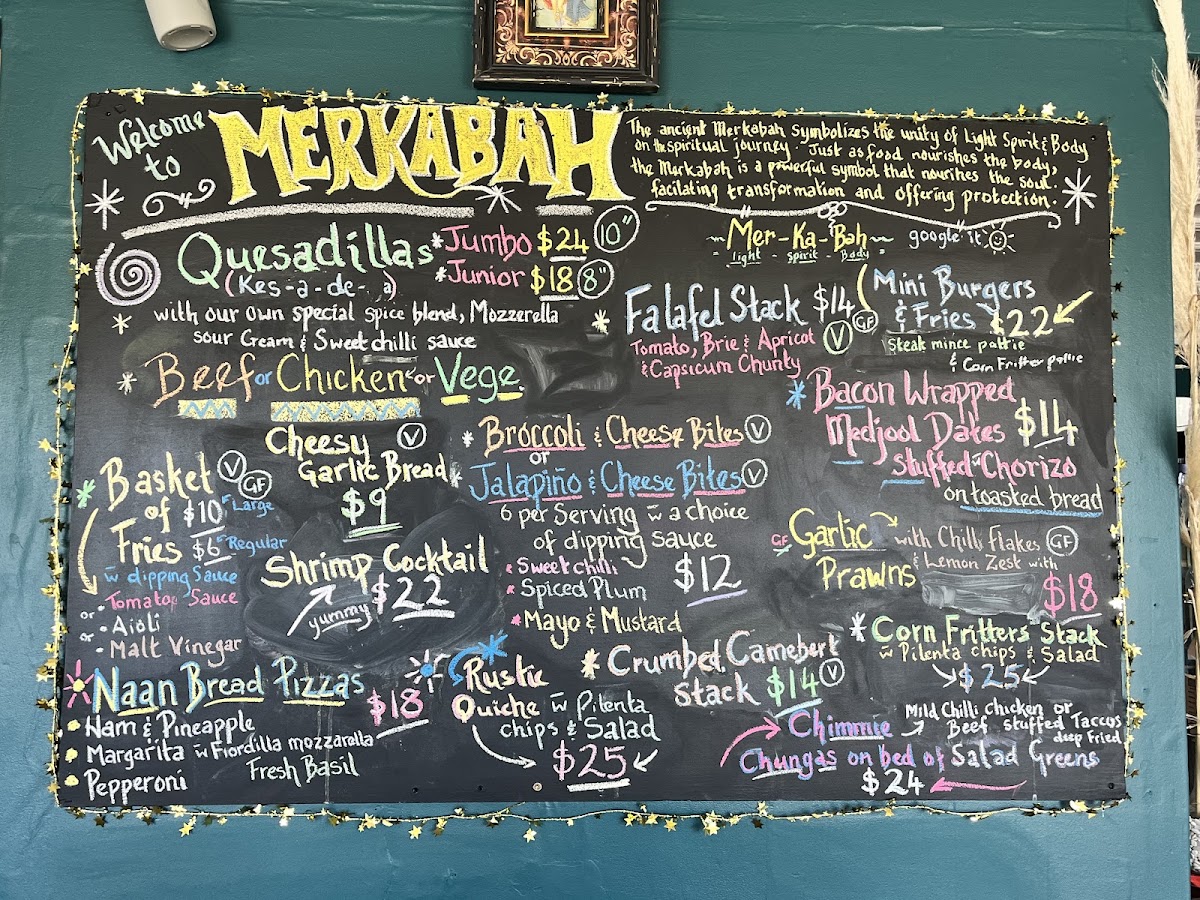 Welcome to
MERKABAH
The ancient Merkabah symbolizes the unity of Light Spirit & Body
on the spiritual journey. Just as food nourishes the body,
the Merkabah is a powerful symbol that nourishes the soul.
facilating transformation and offering protection.
~Mer-Ka-Bah~ google it
= light - spirit - Body =
Quesadillas
(Kes-a-de-a)
*Jumbo $24 10"
*Junior $18 8"
with our own special spice blend, Mozzerella
sour Cream & Sweet chilli sauce
* Beef or Chicken or Vege.
Falafel Stack $14 V GF
Tomato, Brie & Apricot
& Capsicum Chunty
Mini Burgers
& Fries $22
Steak mince pattie
& Corn Fritter pattie
* Bacon Wrapped
Medjool Dates $14
stuffed w Chorizo
on toasted bread
Cheesy V
Garlic Bread
$9
* Basket V GF
of $10 Large
Fries $6 Regular
w dipping Sauce
or • Tomatoe Sauce
or • Aioli
or • Malt Vinegar
Shrimp Cocktail
yummy $22
* Broccoli & Cheese Bites V
or
* Jalapiño & Cheese Bites V
6 per Serving w a choice
of dipping sauce
* Sweet chilli $12
* Spiced Plum
* Mayo & Mustard
GF Garlic Prawns
with Chilli Flakes GF
& Lemon Zest with
$18
* Corn Fritters Stack
w Pilenta chips & Salad
$25
Naan Bread Pizzas $18
Ham & Pineapple
Margarita w Fiordilla mozzarella
Fresh Basil
Pepperoni
Rustic
Quiche w Pilenta
chips & Salad
$25
* Crumbed Camebert
Stack $14 V
Chimmie
Mild Chilli Chicken or
Beef stuffed Taccos
deep Fried
Chungas on bed of Salad Greens
$24